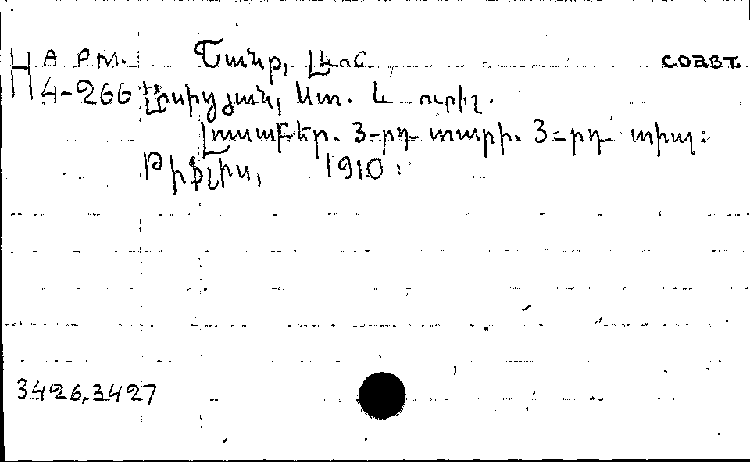 Н АРМ. Շանթ, Լևոն СОВЕТ.
4-266 Լիսիցյան, Ստ. և ուրիշ.
Լուսաբեր. 3-րդ տարի. 3-րդ տիպ:
Թիֆլիս, 1910.
3426,3427